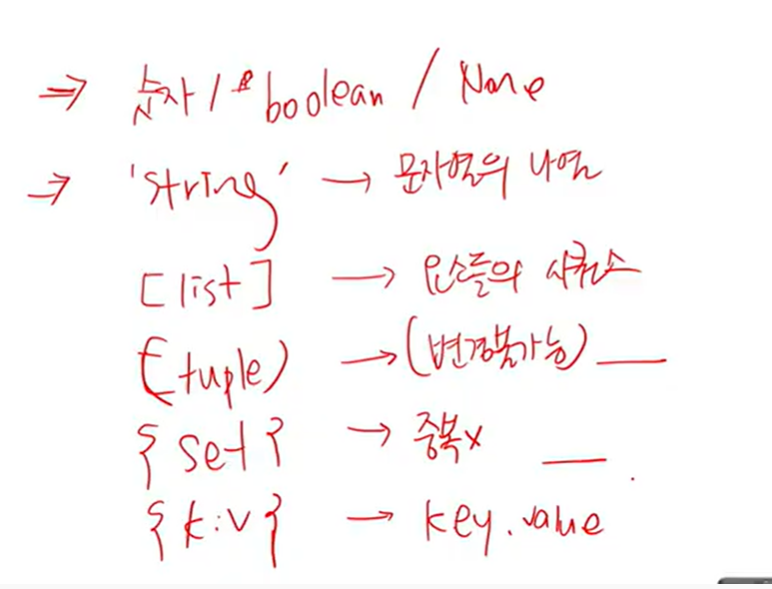 ⇒ 숫자 / boolean / None
→ 'string' → 문자열의 나열
[list] → 요소들의 시퀀스
(tuple) → (변경불가능)
{set} → 중복x
{k:v} → key.value